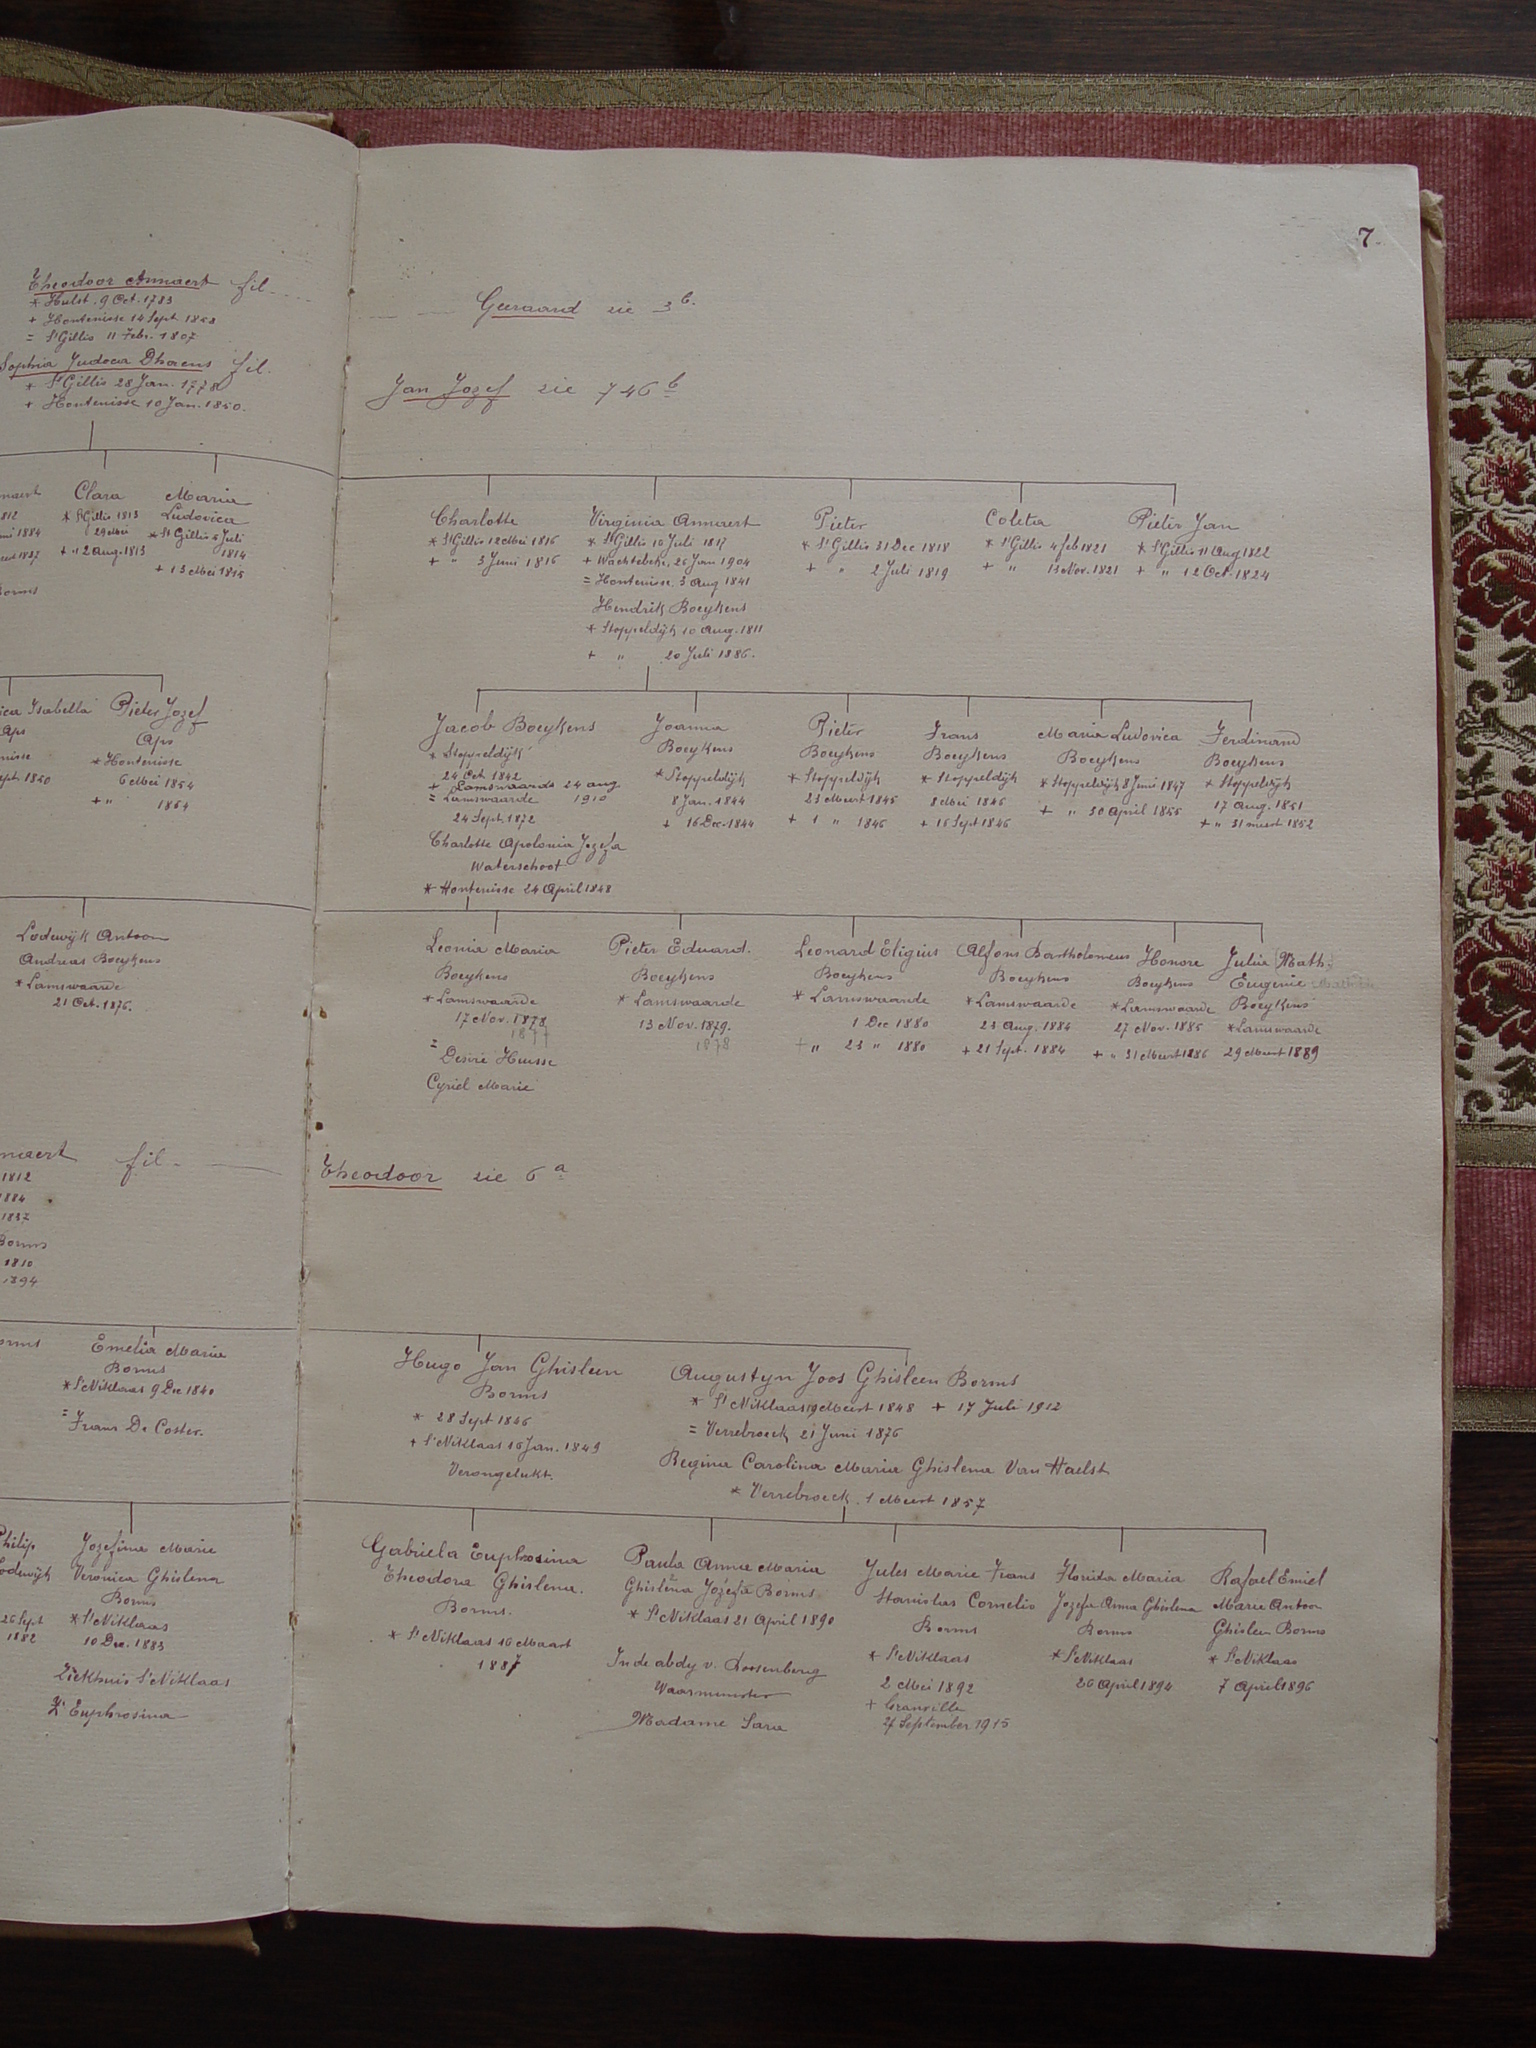 7.
Theodoor Annaert fil.
* Hulst. 9 Oct. 1783
+ Hontenisse 14 Sept 1858
= St Gillis 11 Febr. 1807
Sophia Judoca Dhaens fil.
* St Gillis 28 Jan. 1778
+ Hontenisse 10 Jan. 1850.
Geeraard zie 3 b.
Jan Jozef zie 746 b
Clara
* St Gillis 1813
29 Mei
+ " 2 Aug. 1813
Maria
Ludovica
* St Gillis 5 Juli
1814
+ 13 Mei 1815
Charlotte
* St Gillis 12 Mei 1816
+ " 3 Juni 1816
Virginia Annaert
* St Gillis 10 Juli 1817
+ Wachtebeke, 26 Jan 1904
= Hontenisse. 3 Aug 1841
Hendrik Boeykens
* Stoppeldijk 10 Aug. 1811
+ " 20 Juli 1886.
Pieter
* St Gillis 31 Dec 1818
+ " 2 Juli 1819
Coleta
* St Gillis 4 feb 1821
+ " 13 Nov. 1821
Pieter Jan
* St Gillis 11 Aug 1822
+ " 12 Oct. 1824
Isabella
Aps
Pieter Jozef
Aps
* Hontenisse
6 Mei 1854
+ " 1854
Jacob Boeykens
* Stoppeldijk
24 Oct 1842
+ Lamswaarde 24 aug
1910
= Lamswaarde
24 Sept. 1872
Charlotte Apolonia Jozefa
Waterschoot
* Hontenisse 24 April 1848
Joanna
Boeykens
* Stoppeldijk
8 Jan. 1844
+ 16 Dec. 1844
Pieter
Boeykens
* Stoppeldijk
23 Maart 1845
+ 1 " 1846
Frans
Boeykens
* Stoppeldijk
8 Mei 1846
+ 16 Sept 1846
Maria Ludovica
Boeykens
* Stoppeldijk 8 Juni 1847
+ " 30 April 1855
Ferdinand
Boeykens
* Stoppeldijk
17 Aug. 1851
+ " 31 maart 1852
Lodewijk Antoon
Andreas Boeykens
* Lamswaarde
21 Oct. 1876.
Leonia Maria
Boeykens
* Lamswaarde
17 Nov. 1878
1877
=
Desiré Huisse
Cyriel Marie
Pieter Eduard.
Boeykens
* Lamswaarde
13 Nov. 1879.
1878
Leonard Eligius
Boeykens
* Lamswaarde
1 Dec 1880
+ " 23 " 1880
Alfons Bartholomeus
Boeykens
* Lamswaarde
23 Aug. 1884
+ 21 Sept. 1884
Honore
Boeykens
* Lamswaarde
27 Nov. 1885
+ " 31 Maart 1886
Julia Math.
Eugenie
Boeykens
* Lamswaarde
29 Maart 1889
fil.
1812
1884
1837
Borms
1810
1894
Theodoor zie 6 a
Emelia Maria
Borms
* St Niklaas 9 Dec 1840
=
Frans De Coster.
Hugo Jan Ghisleen
Borms
* 28 Sept 1846
+ St Niklaas 16 Jan. 1849
Verongelukt.
Augustyn Joos Ghisleen Borms
* St Niklaas 19 Maart 1848 + 17 Juli 1912
= Verrebroeck 21 Juni 1876
Regina Carolina Maria Ghislena Van Haelst
* Verrebroeck. 1 Maart 1857
Philip
Lodewijk
26 Sept
1882
Jozefina Marie
Veronica Ghislena
Borms
* St Niklaas
10 Dec. 1883
Ziekhuis St Niklaas
Zr Euphrosina
Gabriela Euphrosina
Theodora Ghislena.
Borms.
* St Niklaas 16 Maart
1887
Paula Anna Maria
Ghislena Jozefa Borms
* St Niklaas 21 April 1890
In de abdij v. Roosenberg
Waasmunster
Madame Sara
Jules Marie Frans
Stanislas Cornelis
Borms
* St Niklaas
2 Mei 1892
+ Granville
27 September 1915
Florida Maria
Jozefa Anna Ghislena
Borms
* St Niklaas
26 April 1894
Rafael Emiel
Marie Antoon
Ghisleen Borms
* St Niklaas
7 April 1896